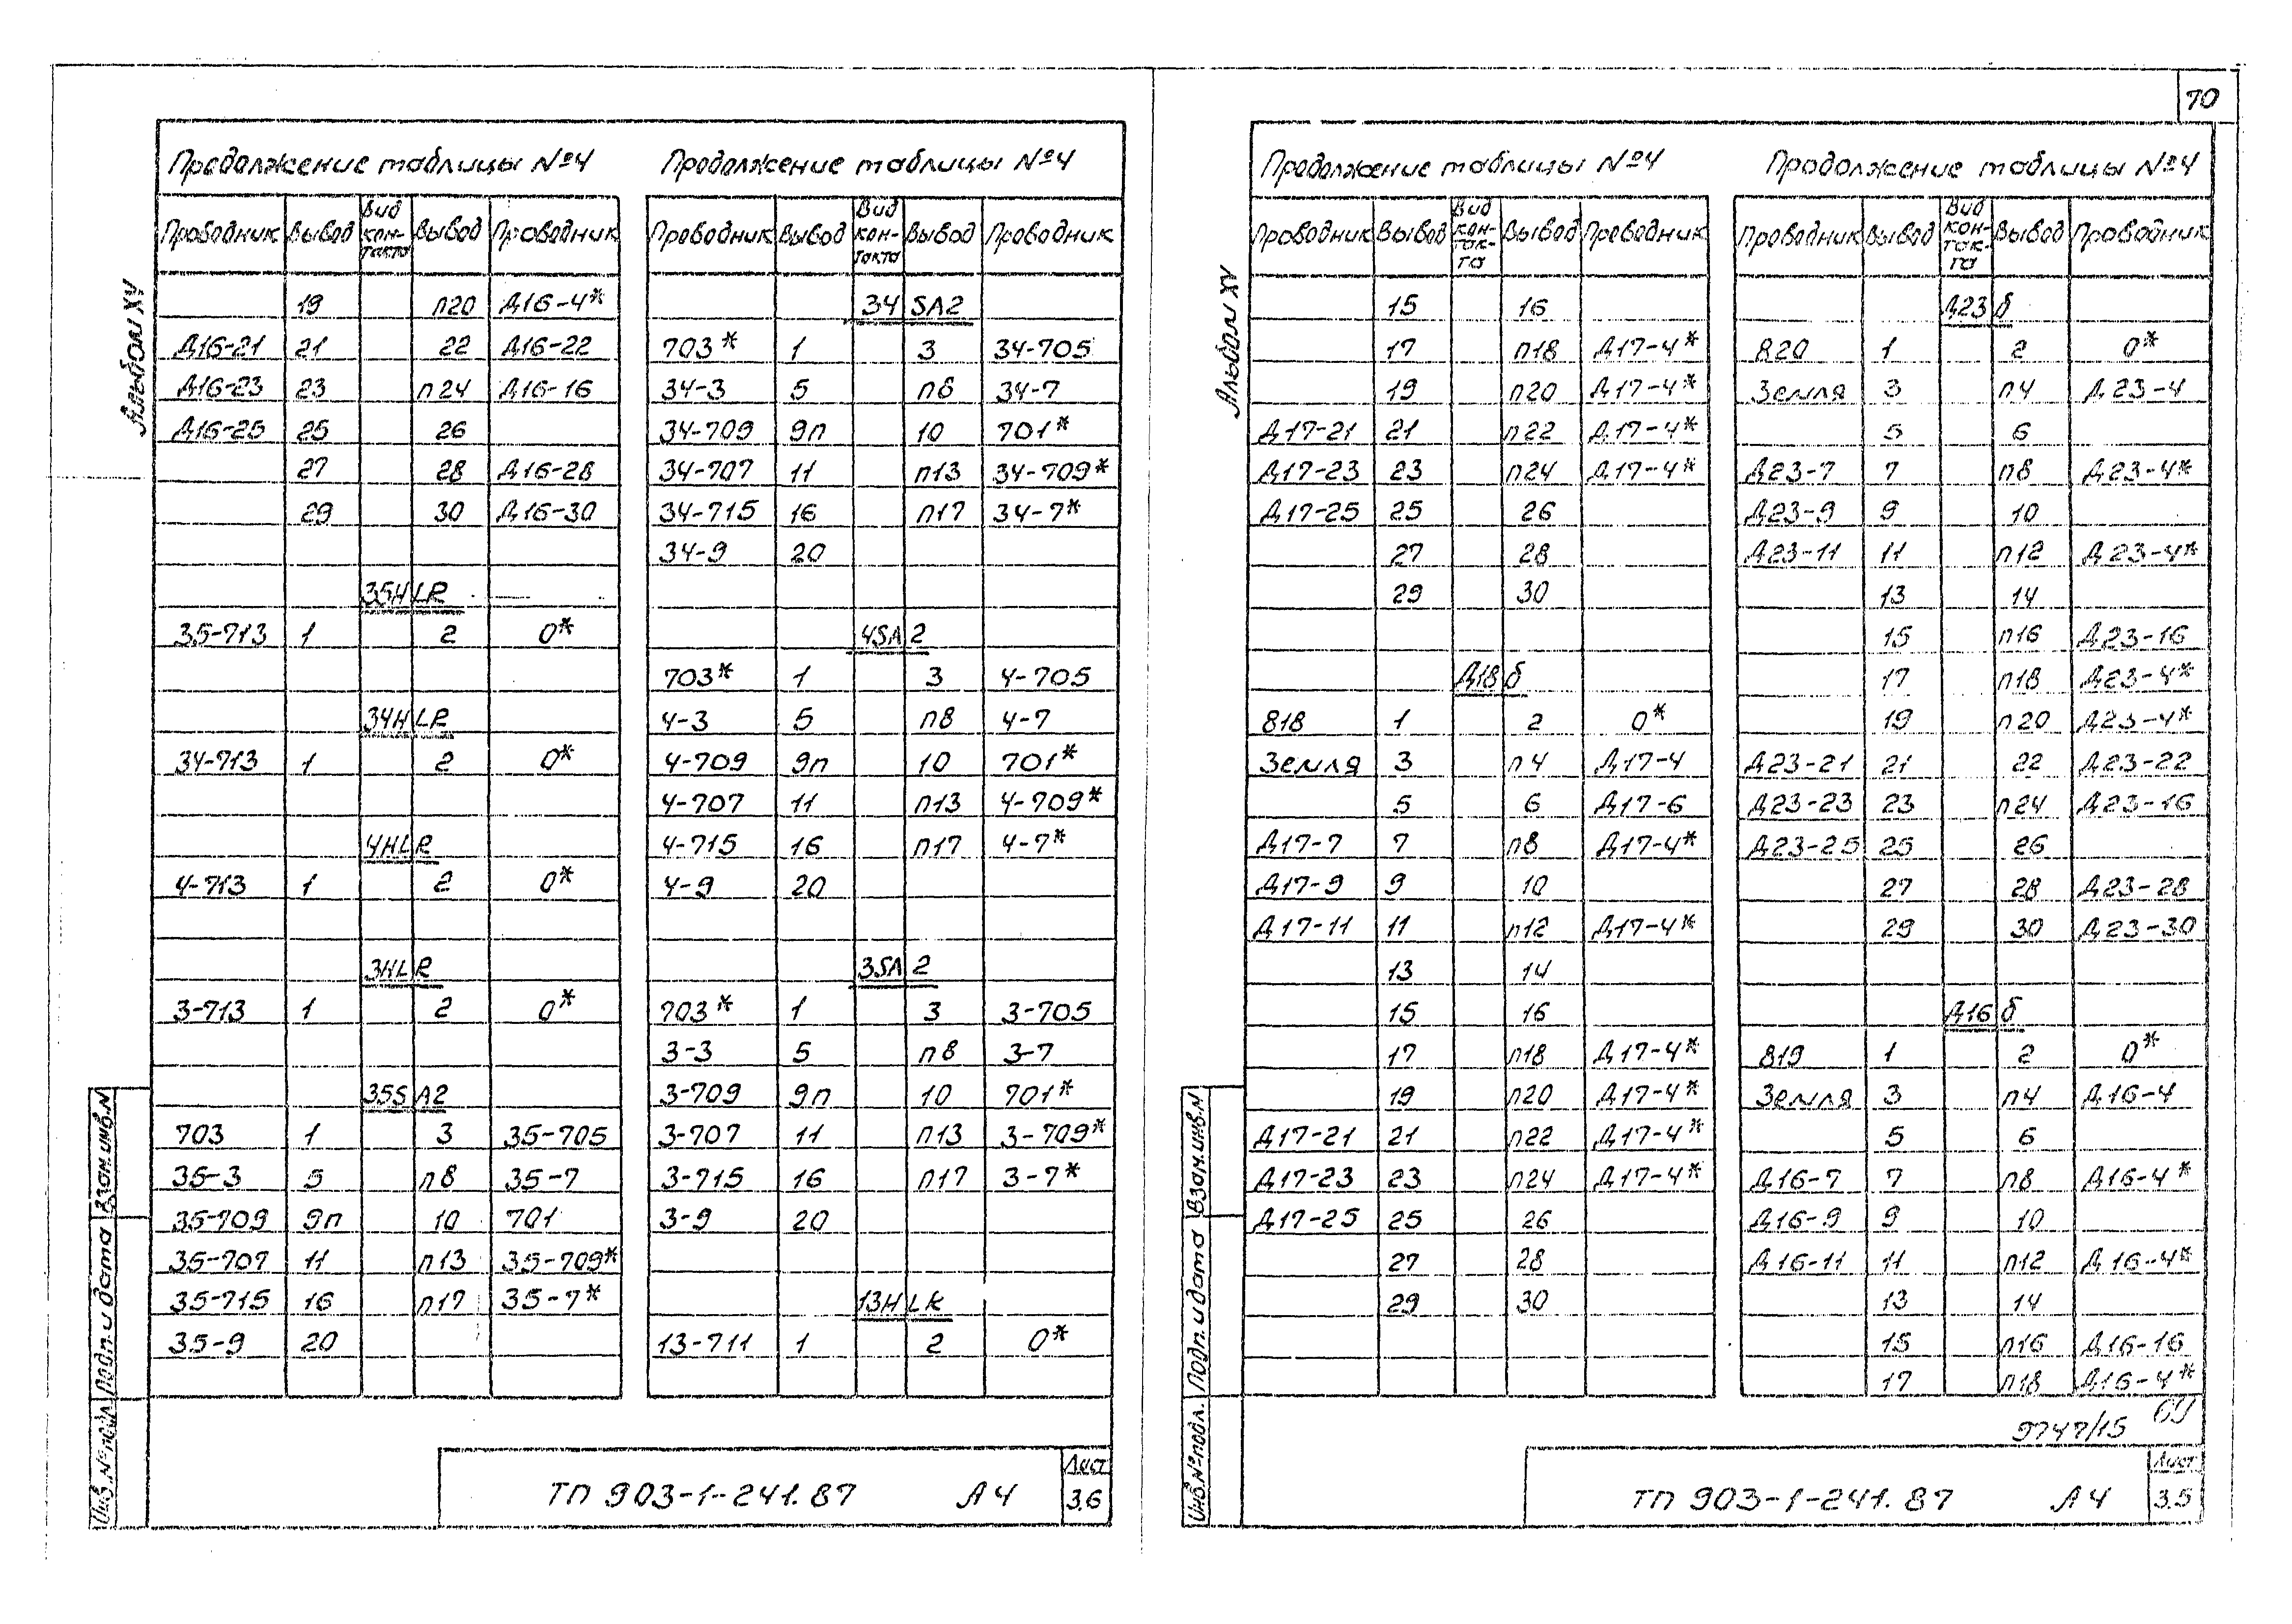 70
Альбом XV
Продолжение таблицы №4
Проводник Вывод Вид кон-такта Вывод Проводник
19 п20 Д16-4*
Д16-21 21 22 Д16-22
Д16-23 23 п24 Д16-16
Д16-25 25 26
27 28 Д16-28
29 30 Д16-30
35HLR
35-713 1 2 0*
34HLR
34-713 1 2 0*
4HLR
4-713 1 2 0*
3HLR
3-713 1 2 0*
35SA2
703 1 3 35-705
35-3 5 п8 35-7
35-709 9п 10 701
35-707 11 п13 35-709*
35-715 16 п17 35-7*
35-9 20
Продолжение таблицы №4
Проводник Вывод Вид кон-такта Вывод Проводник
34SA2
703* 1 3 34-705
34-3 5 п8 34-7
34-709 9п 10 701*
34-707 11 п13 34-709*
34-715 16 п17 34-7*
34-9 20
4SA2
703* 1 3 4-705
4-3 5 п8 4-7
4-709 9п 10 701*
4-707 11 п13 4-709*
4-715 16 п17 4-7*
4-9 20
3SA2
703* 1 3 3-705
3-3 5 п8 3-7
3-709 9п 10 701*
3-707 11 п13 3-709*
3-715 16 п17 3-7*
3-9 20
13HLK
13-711 1 2 0*
Инв.№подл. Подп. и дата Взам.инв.N
ТП 903-1-241.87 А4
Лист
3.6
Альбом XV
Продолжение таблицы №4
Проводник Вывод Вид кон-так-та Вывод Проводник
15 16
17 п18 Д17-4*
19 п20 Д17-4*
Д17-21 21 п22 Д17-4*
Д17-23 23 п24 Д17-4*
Д17-25 25 26
27 28
29 30
Д18б
818 1 2 0*
Земля 3 п4 Д17-4
5 6 Д17-6
Д17-7 7 п8 Д17-4*
Д17-9 9 10
Д17-11 11 п12 Д17-4*
13 14
15 16
17 п18 Д17-4*
19 п20 Д17-4*
Д17-21 21 п22 Д17-4*
Д17-23 23 п24 Д17-4*
Д17-25 25 26
27 28
29 30
Продолжение таблицы №4
Проводник Вывод Вид кон-так-та Вывод Проводник
Д23б
820 1 2 0*
Земля 3 п4 Д23-4
5 6
Д23-7 7 п8 Д23-4*
Д23-9 9 10
Д23-11 11 п12 Д23-4*
13 14
15 п16 Д23-16
17 п18 Д23-4*
19 п20 Д23-4*
Д23-21 21 22 Д23-22
Д23-23 23 п24 Д23-16
Д23-25 25 26
27 28 Д23-28
29 30 Д23-30
Д16б
819 1 2 0*
Земля 3 п4 Д16-4
5 6
Д16-7 7 п8 Д16-4*
Д16-9 9 10
Д16-11 11 п12 Д16-4*
13 14
15 п16 Д16-16
17 п18 Д16-4*
9747/15
Инв.№подл. Подп. и дата Взам.инв.N
ТП 903-1-241.87 А4
Лист
3.5